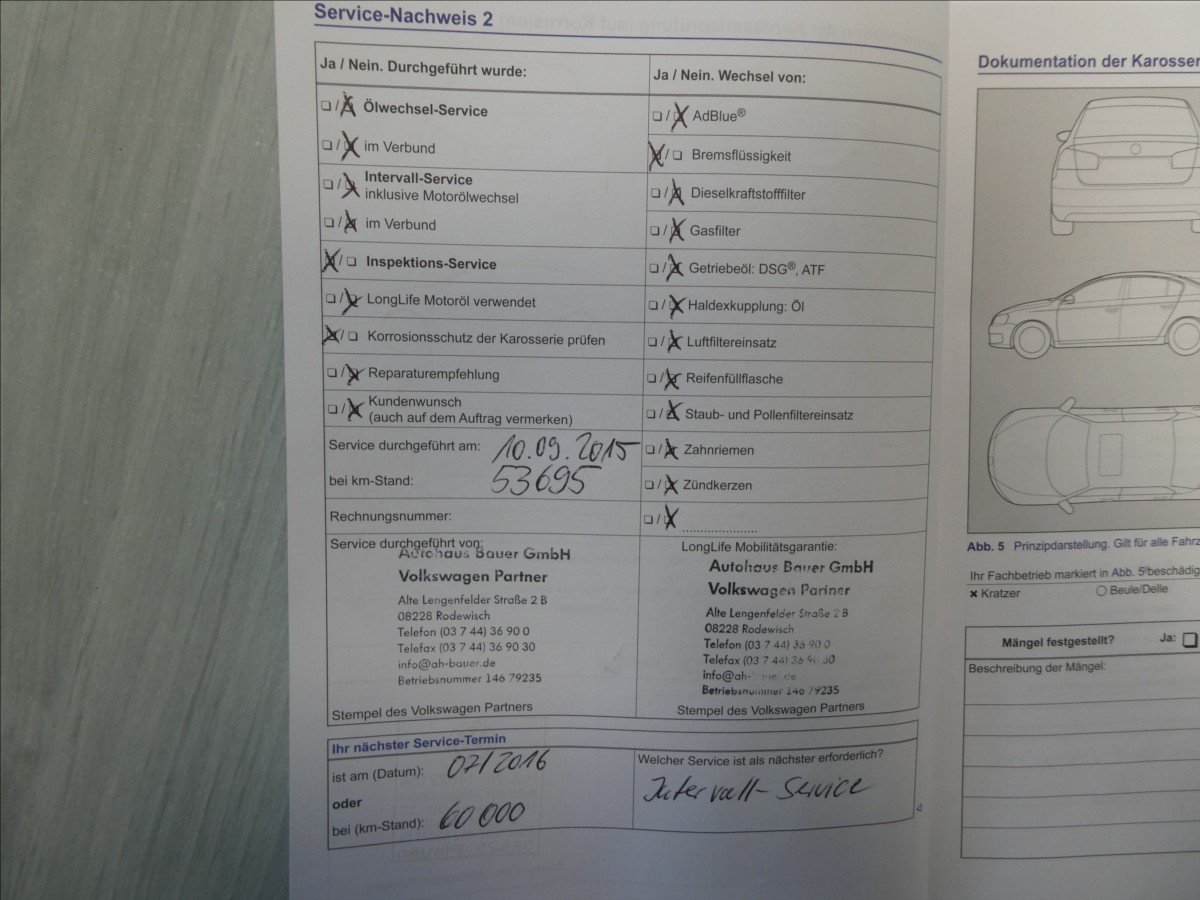 Service-Nachweis 2
Ja / Nein. Durchgeführt wurde:
Ölwechsel-Service
im Verbund
Intervall-Service
inklusive Motorölwechsel
im Verbund
Inspektions-Service
LongLife Motoröl verwendet
Korrosionsschutz der Karosserie prüfen
Reparaturempfehlung
Kundenwunsch
(auch auf dem Auftrag vermerken)
Service durchgeführt am: 10.09.2015
bei km-Stand: 53695
Rechnungsnummer:
Ja / Nein. Wechsel von:
AdBlue®
Bremsflüssigkeit
Dieselkraftstofffilter
Gasfilter
Getriebeöl: DSG®, ATF
Haldexkupplung: Öl
Luftfiltereinsatz
Reifenfüllflasche
Staub- und Pollenfiltereinsatz
Zahnriemen
Zündkerzen
Service durchgeführt von:
Autohaus Bauer GmbH
Volkswagen Partner
Alte Lengenfelder Straße 2 B
08228 Rodewisch
Telefon (03 7 44) 36 90 0
Telefax (03 7 44) 36 90 30
info@ah-bauer.de
Betriebsnummer 146 79235
Stempel des Volkswagen Partners
LongLife Mobilitätsgarantie:
Autohaus Bauer GmbH
Volkswagen Partner
Alte Lengenfelder Straße 2 B
08228 Rodewisch
Telefon (03 7 44) 36 90 0
Telefax (03 7 44) 36 90 30
info@ah-bauer.de
Betriebsnummer 146 79235
Stempel des Volkswagen Partners
Ihr nächster Service-Termin
ist am (Datum): 07/2016
oder
bei (km-Stand): 60 000
Welcher Service ist als nächster erforderlich?
Intervall-Service
Dokumentation der Karosser
Abb. 5 Prinzipdarstellung. Gilt für alle Fahrz
Ihr Fachbetrieb markiert in Abb. 5 beschädig
Kratzer
Beule/Delle
Mängel festgestellt? Ja:
Beschreibung der Mängel: